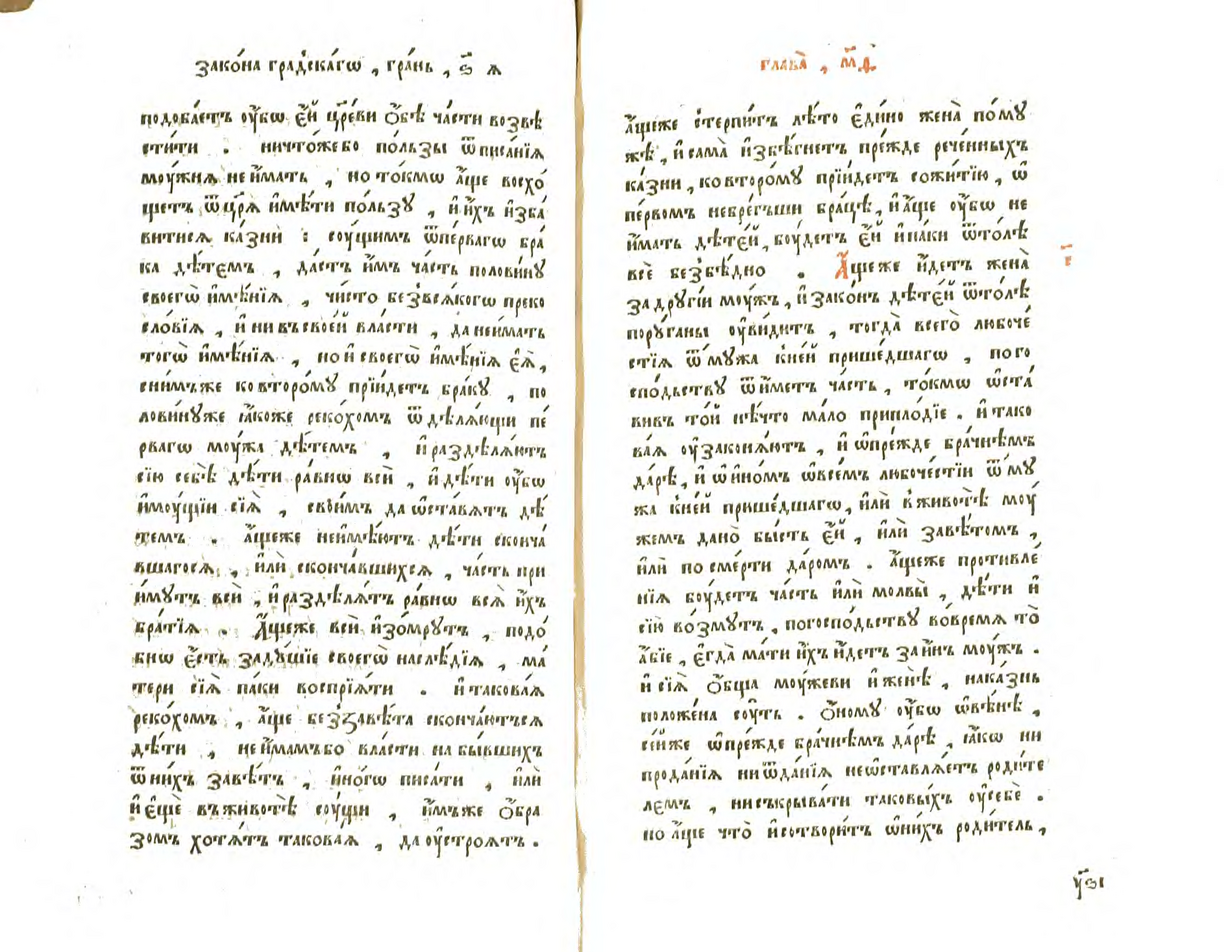 зако́на гра́дскагѡ , гра́нь , ѕ҃ ꙗ
подоба́етъ ᲂу҆́бѡ є҆́й цр҃еви ѻ҆́бѣ ча́сти возвѣ
сти́ти . ничто́жебо по́льзы ѿписа́нїѧ
мᲂу́жнѧ не и҆́мать , но то́кмѡ а҆́ще восхо́
щетъ ѿцр҃ѧ̀ и҆мѣ́ти по́льзꙋ , и҆ и҆́хъ и҆зба́
витисѧ ка́зни : сᲂу́щимъ ѿпе́рвагѡ бра́
ка дѣ́темъ , да́стъ и҆̀мъ ча́сть полови́нꙋ
своегѡ̀ и҆мѣ́нїѧ , чи́сто без̾всѧ́когѡ преко
сло́вїѧ , и҆ ни въ свое́й вла́сти , да неи́мать
тогѡ̀ и҆мѣ́нїѧ , но и҆ своегѡ̀ и҆мѣ́нїѧ є҆ѧ̀ ,
сни́мъже ко второ́мꙋ прїи́детъ бра́кꙋ , по
лови́нꙋже ꙗ҆́коже реко́хомъ ѿдѣлѧ́ющи пе́
рвагѡ мᲂу́жа дѣ́темъ , и҆ раздѣлѧ́ютъ
сїю̀ себѣ̀ дѣ́ти ра́внѡ всѝ , и҆ дѣ́ти ᲂу҆́бѡ
и҆мᲂу́щїи сїѧ̀ , свои̑мъ да ѡ҆ста́вѧтъ дѣ́
темъ . а҆́щеже неи҆мѣ́ютъ дѣ́ти сконча́
вшагосѧ , и҆лѝ сконча́вшихсѧ , ча́сть при
и́мутъ всѝ , и҆ раздѣлѧ́тъ ра́внѡ всѧ̀ и҆́хъ
бра́тїѧ . А҆́щеже всѝ и҆зо́мрꙋтъ , подо́
бнѡ є҆́сть задꙋ́шїе своегѡ̀ наслѣ́дїѧ , ма́
тери сїѧ̀ па́ки воспрїѧ́ти . и҆ такова́ѧ
реко́хомъ , а҆́ще без̾завѣ́та сконча́ютсѧ
дѣ́ти , не и҆́мамъбо вла́сти на бы́вшихъ
ѿ ни́хъ завѣ́тъ , и҆но́гѡ писа́ти , и҆лѝ
и҆ є҆щѐ въ животѣ̀ сᲂу́щи , и҆́мъже ѻ҆́бра
зомъ хотѧ́тъ такова́ѧ , да ᲂу҆стро́ѧтъ .
глава̀ , м҃д
а҆́щеже стерпи́тъ лѣ́то є҆ди́но жена̀ по мꙋ́
жѣ , и҆ сама̀ и҆збѣ́гнетъ пре́жде рече́нныхъ
ка́зни , ко второ́мꙋ прїи́детъ сожи́тїю , ѡ҆
пе́рвомъ небре́гъши бра́цѣ , и҆ а҆́ще ᲂу҆́бѡ не
и҆́мать дѣ́тєй , бᲂу́детъ є҆́й и҆ па́ки ѿто́лѣ
всѐ без̾бѣ́дно . А҆́щеже и҆́детъ жена̀
за дрꙋгі́и мᲂу́жъ , и҆ зако́нъ дѣ́тєй ѿто́лѣ
порꙋ́ганы ᲂу҆ви́дитъ , тогда̀ всегѡ̀ любоче́
стїѧ ѿ мꙋ́жа к̾не́й прише́дшагѡ , по го
спо́дьствꙋ ѿи́метъ ча́сть , то́кмѡ ѡ҆ста́
вивъ то́й нѣ́что ма́ло припло́дїе . и҆ тако
ва́ѧ ᲂу҆законѧ́ютъ , и҆ ѡ҆пре́жде бра́чнѣмъ
да́рѣ , и҆ ѡ҆ и҆но́мъ ѡ҆всѣ́мъ любоче́стїи ѿ мꙋ́
жа к̾не́й прише́дшагѡ , и҆лѝ в̾животѣ̀ мᲂу́
жемъ дано̀ бы́сть є҆́й , и҆лѝ завѣ́томъ ,
и҆лѝ по сме́рти да́ромъ . а҆́щеже противле́
нїѧ бᲂу́детъ ча́сть и҆лѝ молвы̀ , дѣ́ти и҆
сїю̀ во́змꙋтъ , погоспо́дьствꙋ во́времѧ то̀
а҆́бїе , є҆гда̀ ма́ти и҆́хъ и҆́детъ за и҆́нъ мᲂу́жъ .
и҆ сїѧ̀ ѻ҆́бща мᲂу́жеви и҆ женѣ̀ , нака́знь
положе́на сᲂу́ть . ѻ҆́номꙋ ᲂу҆́бѡ ѡ҆вѣ́нѣ ,
се́йже ѡ҆пре́жде бра́чнѣмъ да́рѣ , ꙗ҆́кѡ ни
прода́нїѧ ни ѿда́нїѧ неѡ҆ставлѧ́етъ роди́те
лемъ , ни съкрыва́ти таковы́хъ ᲂу҆себѐ .
но а҆́ще что̀ и҆ сотвори́тъ ѡ҆ ни́хъ роди́тель ,
і҃
ᲂу҃зі